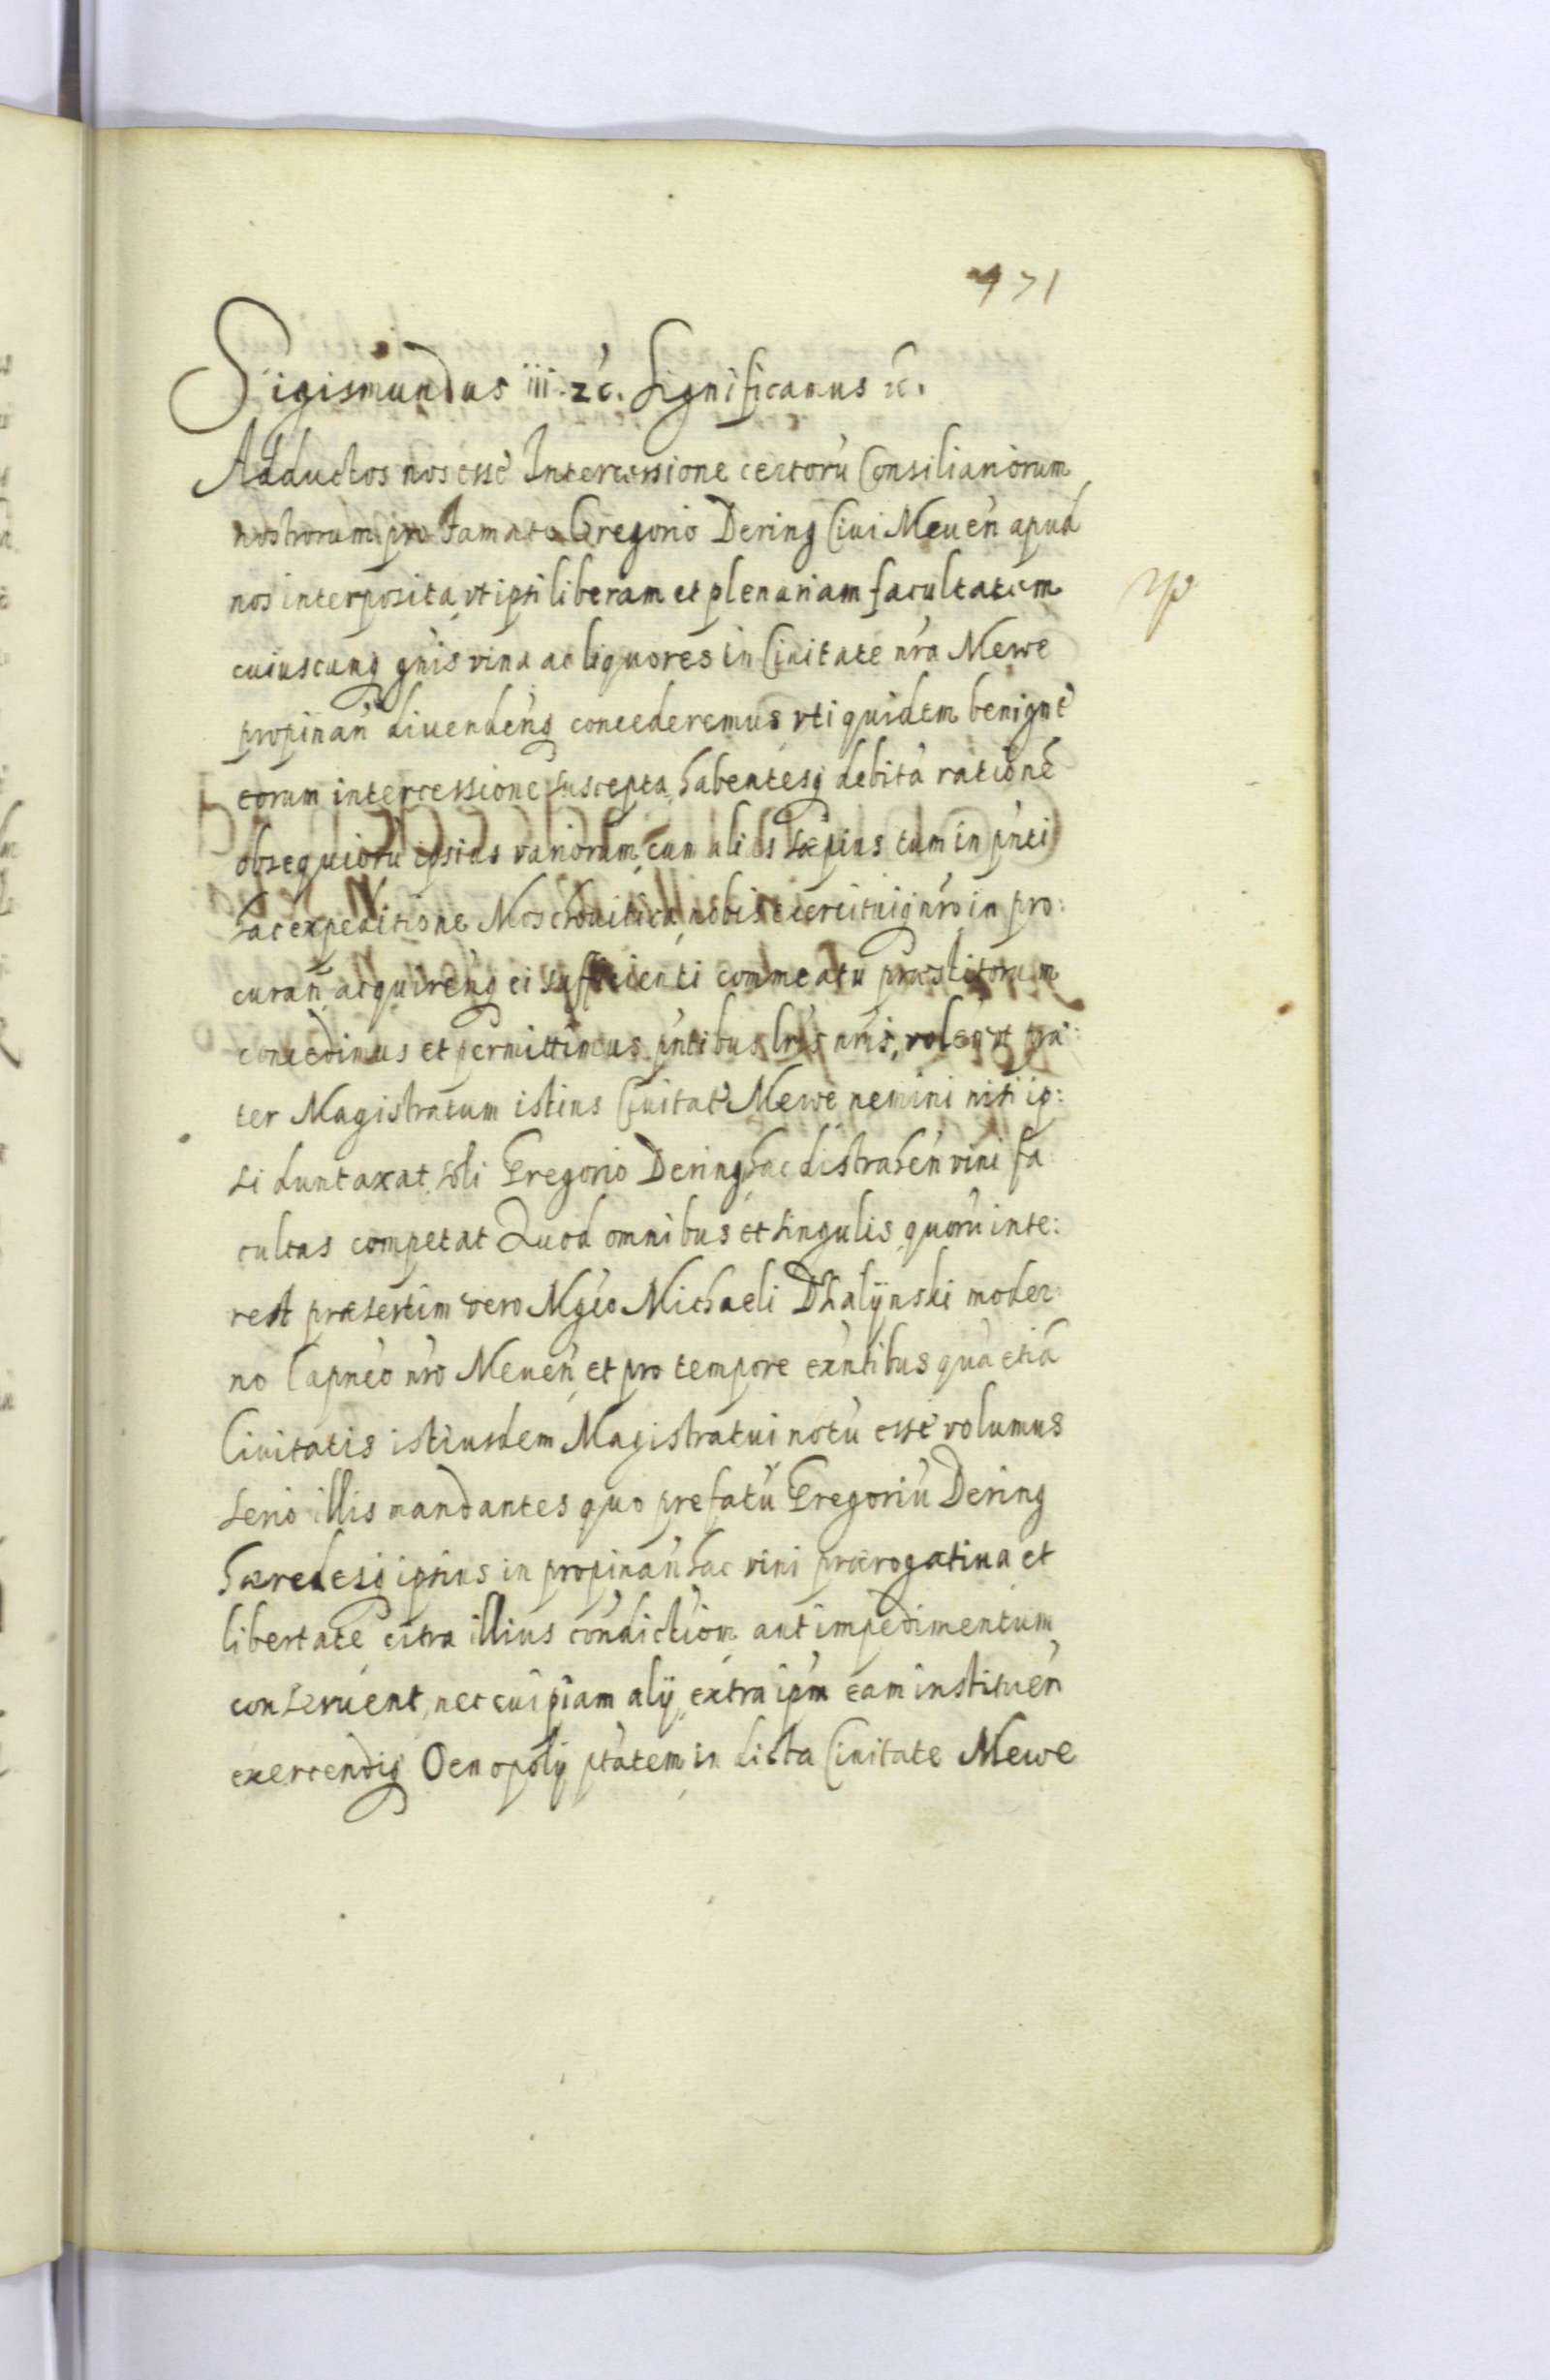 471
Sigismundus iii. zc. Significamus zc.
Adductos nos esse Intercessione certorũ Consiliariorum
nostrorum pro Famato Gregorio Dering Ciui Meuen̄ apud
nos interposita, vt ipsi liberam et plenariam facultatem
cuiuscunq gn̄is vina ac liquores in Ciuitate nr̄a Mewe
propinan̄ diuenden̄q concederemus vti quidem benigne
eorum intercessione suscepta, habentesq debitã rationẽ
obsequiorũ ipsius variorum, cum alias sæpius tum in pn̄ti
hac expeditione Moschouitica, nobis exercituiq nr̄o in pro:
curan̄ acquiren̄q ei sufficienti commeatu præstitorum
concedimus et permittimus pn̄tibus lr̄is nr̄is, volen̄ vt præ:
ter Magistratum istius Ciuitat Mewe nemini nisi ip:
si duntaxat soli Gregorio Dering hac distrahen̄ vini fa
cultas competat Quod omnibus et singulis quorũ inte:
rest præsertim vero Mgn̄co Michaeli Dzalÿnski moder:
no Capn̄eo nr̄o Meuen̄ et pro tempore exn̄tibus quã etiã
Ciuitatis istiusdem Magistratui notũ esse volumus
serio illis mandantes quo prefatũ Gregoriũ Dering
hæredesq ipsius in propinan̄ hac vini prærogatiua et
libertate citra illius condictiõm aut impedimentum
conseruent, nec cuipiam alÿ extra ipm̄ eam instituen̄
exercendiq Oenopolÿ ptãtem in dicta Ciuitate Mewe